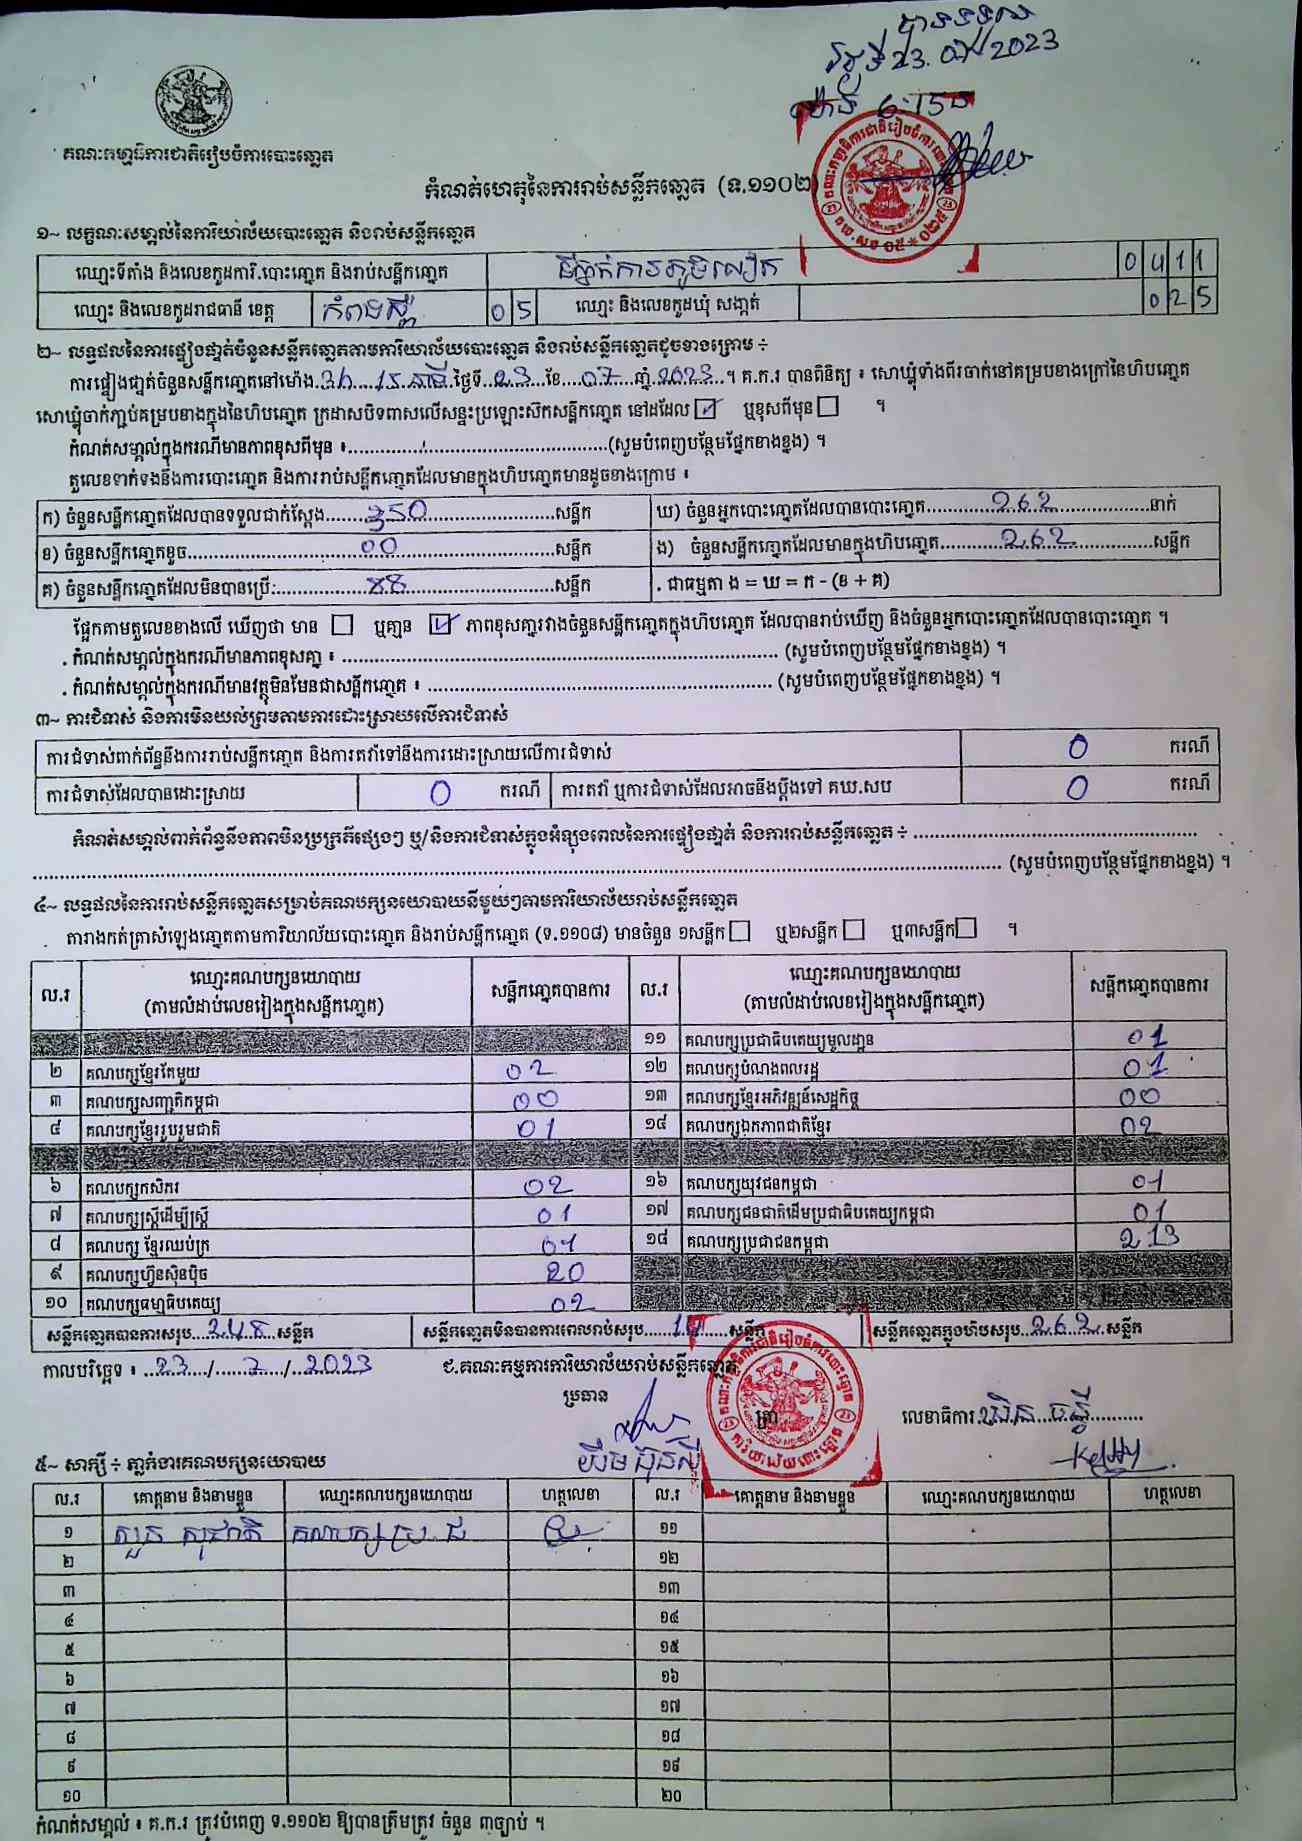 បានទទួល
ថ្ងៃទី 23. 07/2023
ម៉ោង 6:15
គណៈកម្មាធិការជាតិរៀបចំការបោះឆ្នោត
កំណត់ហេតុនៃការរាប់សន្លឹកឆ្នោត (ទ.១១០២)
១~ លក្ខណៈសម្គាល់នៃការិយាល័យបោះឆ្នោត និងរាប់សន្លឹកឆ្នោត
ឈ្មោះទីតាំង និងលេខកូដការិ.បោះឆ្នោត និងរាប់សន្លឹកឆ្នោត 0411
ឈ្មោះ និងលេខកូដរាជធានី ខេត្ត កំពង់ស្ពឺ 05 ឈ្មោះ និងលេខកូដឃុំ សង្កាត់ 025
២~ លទ្ធផលនៃការផ្ទៀងផ្ទាត់ចំនួនសន្លឹកឆ្នោតតាមការិយាល័យបោះឆ្នោត និងរាប់សន្លឹកឆ្នោតដូចខាងក្រោម ÷
ការផ្ទៀងផ្ទាត់ចំនួនសន្លឹកឆ្នោតនៅម៉ោង 3h 15 នាទី ថ្ងៃទី 23 ខែ 07 ឆ្នាំ 2023 ។ គ.ក.រ បានពិនិត្យ ៖ សោឃ្លុំទាំងពីរចាក់នៅគម្របខាងក្រៅនៃហិបឆ្នោត
សោឃ្លុំចាក់ភ្ជាប់គម្របខាងក្នុងនៃហិបឆ្នោត ក្រដាសបិទពាសលើសន្ទះប្រឡោះស៊កសន្លឹកឆ្នោត នៅដដែល ☑ ឬខុសពីមុន ☐ ។
កំណត់សម្គាល់ក្នុងករណីមានភាពខុសពីមុន ៖ (សូមបំពេញបន្ថែមផ្នែកខាងខ្នង) ។
តួលេខទាក់ទងនឹងការបោះឆ្នោត និងការរាប់សន្លឹកឆ្នោតដែលមានក្នុងហិបឆ្នោតមានដូចខាងក្រោម ៖
ក) ចំនួនសន្លឹកឆ្នោតដែលបានទទួលជាក់ស្តែង 350 សន្លឹក ឃ) ចំនួនអ្នកបោះឆ្នោតដែលបានបោះឆ្នោត 262 នាក់
ខ) ចំនួនសន្លឹកឆ្នោតខូច 00 សន្លឹក ង) ចំនួនសន្លឹកឆ្នោតដែលមានក្នុងហិបឆ្នោត 262 សន្លឹក
គ) ចំនួនសន្លឹកឆ្នោតដែលមិនបានប្រើ 88 សន្លឹក . ជាធម្មតា ង = ឃ = ក - (ខ + គ)
ផ្អែកតាមតួលេខខាងលើ ឃើញថា មាន ☐ ឬគ្មាន ☑ ភាពខុសគ្នារវាងចំនួនសន្លឹកឆ្នោតក្នុងហិបឆ្នោត ដែលបានរាប់ឃើញ និងចំនួនអ្នកបោះឆ្នោតដែលបានបោះឆ្នោត ។
. កំណត់សម្គាល់ក្នុងករណីមានភាពខុសគ្នា ៖ (សូមបំពេញបន្ថែមផ្នែកខាងខ្នង) ។
. កំណត់សម្គាល់ក្នុងករណីមានវត្ថុមិនមែនជាសន្លឹកឆ្នោត ៖ (សូមបំពេញបន្ថែមផ្នែកខាងខ្នង) ។
៣~ ការជំទាស់ និងការមិនយល់ព្រមតាមការដោះស្រាយលើការជំទាស់
ការជំទាស់ពាក់ព័ន្ធនឹងការរាប់សន្លឹកឆ្នោត និងការតវ៉ាទៅនឹងការដោះស្រាយលើការជំទាស់ 0 ករណី
ការជំទាស់ដែលបានដោះស្រាយ 0 ករណី ការតវ៉ា ឬការជំទាស់ដែលអាចនឹងប្តឹងទៅ គឃ.សប 0 ករណី
កំណត់សម្គាល់ពាក់ព័ន្ធនឹងភាពមិនប្រក្រតីផ្សេងៗ ឬ/និងការជំទាស់ក្នុងអំឡុងពេលនៃការផ្ទៀងផ្ទាត់ និងការរាប់សន្លឹកឆ្នោត ÷
(សូមបំពេញបន្ថែមផ្នែកខាងខ្នង) ។
៤~ លទ្ធផលនៃការរាប់សន្លឹកឆ្នោតសម្រាប់គណបក្សនយោបាយនីមួយៗតាមការិយាល័យរាប់សន្លឹកឆ្នោត
តារាងកត់ត្រាសំឡេងឆ្នោតតាមការិយាល័យបោះឆ្នោត និងរាប់សន្លឹកឆ្នោត (ទ.១១០៨) មានចំនួន ១សន្លឹក ☐ ឬ២សន្លឹក ☐ ឬ៣សន្លឹក ☐ ។
ល.រ ឈ្មោះគណបក្សនយោបាយ (តាមលំដាប់លេខរៀងក្នុងសន្លឹកឆ្នោត) សន្លឹកឆ្នោតបានការ ល.រ ឈ្មោះគណបក្សនយោបាយ (តាមលំដាប់លេខរៀងក្នុងសន្លឹកឆ្នោត) សន្លឹកឆ្នោតបានការ
១១ គណបក្សប្រជាធិបតេយ្យមូលដ្ឋាន 01
២ គណបក្សខ្មែរតែមួយ 02 ១២ គណបក្សបំណងពលរដ្ឋ 01
៣ គណបក្សសញ្ជាតិកម្ពុជា 00 ១៣ គណបក្សខ្មែរអភិវឌ្ឍន៍សេដ្ឋកិច្ច 00
៤ គណបក្សខ្មែររួបរួមជាតិ 01 ១៤ គណបក្សឯកភាពជាតិខ្មែរ 02
៦ គណបក្សកសិករ 02 ១៦ គណបក្សយុវជនកម្ពុជា 01
៧ គណបក្សស្ត្រីដើម្បីស្ត្រី 01 ១៧ គណបក្សជនជាតិដើមប្រជាធិបតេយ្យកម្ពុជា 01
៨ គណបក្ស ខ្មែរឈប់ក្រ 01 ១៨ គណបក្សប្រជាជនកម្ពុជា 213
៩ គណបក្សហ៊្វុនស៊ិនប៉ិច 20
១០ គណបក្សធម្មាធិបតេយ្យ 02
សន្លឹកឆ្នោតបានការសរុប 248 សន្លឹក សន្លឹកឆ្នោតមិនបានការពេលរាប់សរុប 14 សន្លឹក សន្លឹកឆ្នោតក្នុងហិបសរុប 262 សន្លឹក
កាលបរិច្ឆេទ ៖ 23/7/2023 ជ.គណៈកម្មការការិយាល័យរាប់សន្លឹកឆ្នោត
ប្រធាន ត្រា លេខាធិការ
៥~ សាក្សី ÷ ភ្នាក់ងារគណបក្សនយោបាយ
ល.រ គោត្តនាម និងនាមខ្លួន ឈ្មោះគណបក្សនយោបាយ ហត្ថលេខា ល.រ គោត្តនាម និងនាមខ្លួន ឈ្មោះគណបក្សនយោបាយ ហត្ថលេខា
១ សួន សុជាតិ គណបក្សប្រ.ជ ១១
២ ១២
៣ ១៣
៤ ១៤
៥ ១៥
៦ ១៦
៧ ១៧
៨ ១៨
៩ ១៩
១០ ២០
កំណត់សម្គាល់ ៖ គ.ក.រ ត្រូវបំពេញ ទ.១១០២ ឱ្យបានត្រឹមត្រូវ ចំនួន ៣ច្បាប់ ។